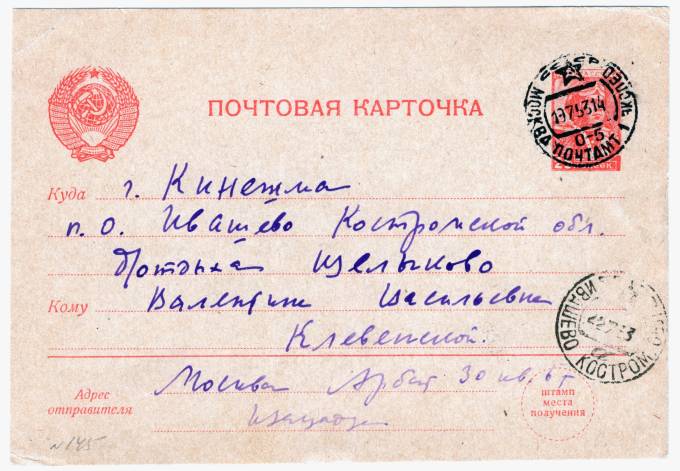 ПОЧТОВАЯ КАРТОЧКА
МОСКВА ПОЧТАМТ 1
197 53 14
0-5
Куда г. Кинешма
п. о. Ивашево Костромской обл.
Щелыково
Кому Валентине Васильевне
Клевенской.
ИВАШЕВО КОСТРОМ
Адрес отправителя
Москва Арбат 30 кв. 67
штамп
места
получения
N 145